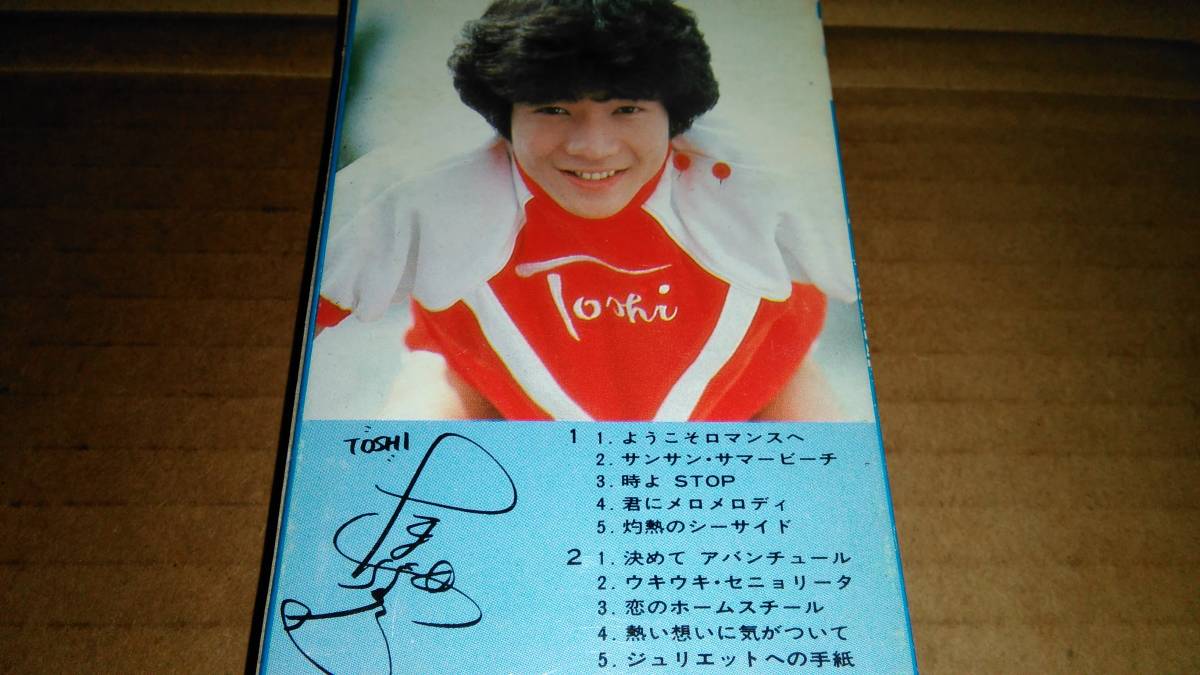 Toshi
TOSHI
1 1. ようこそロマンスへ
2. サンサン・サマービーチ
3. 時よ STOP
4. 君にメロメロディ
5. 灼熱のシーサイド
2 1. 決めて アバンチュール
2. ウキウキ・セニョリータ
3. 恋のホームスチール
4. 熱い想いに気がついて
5. ジュリエットへの手紙